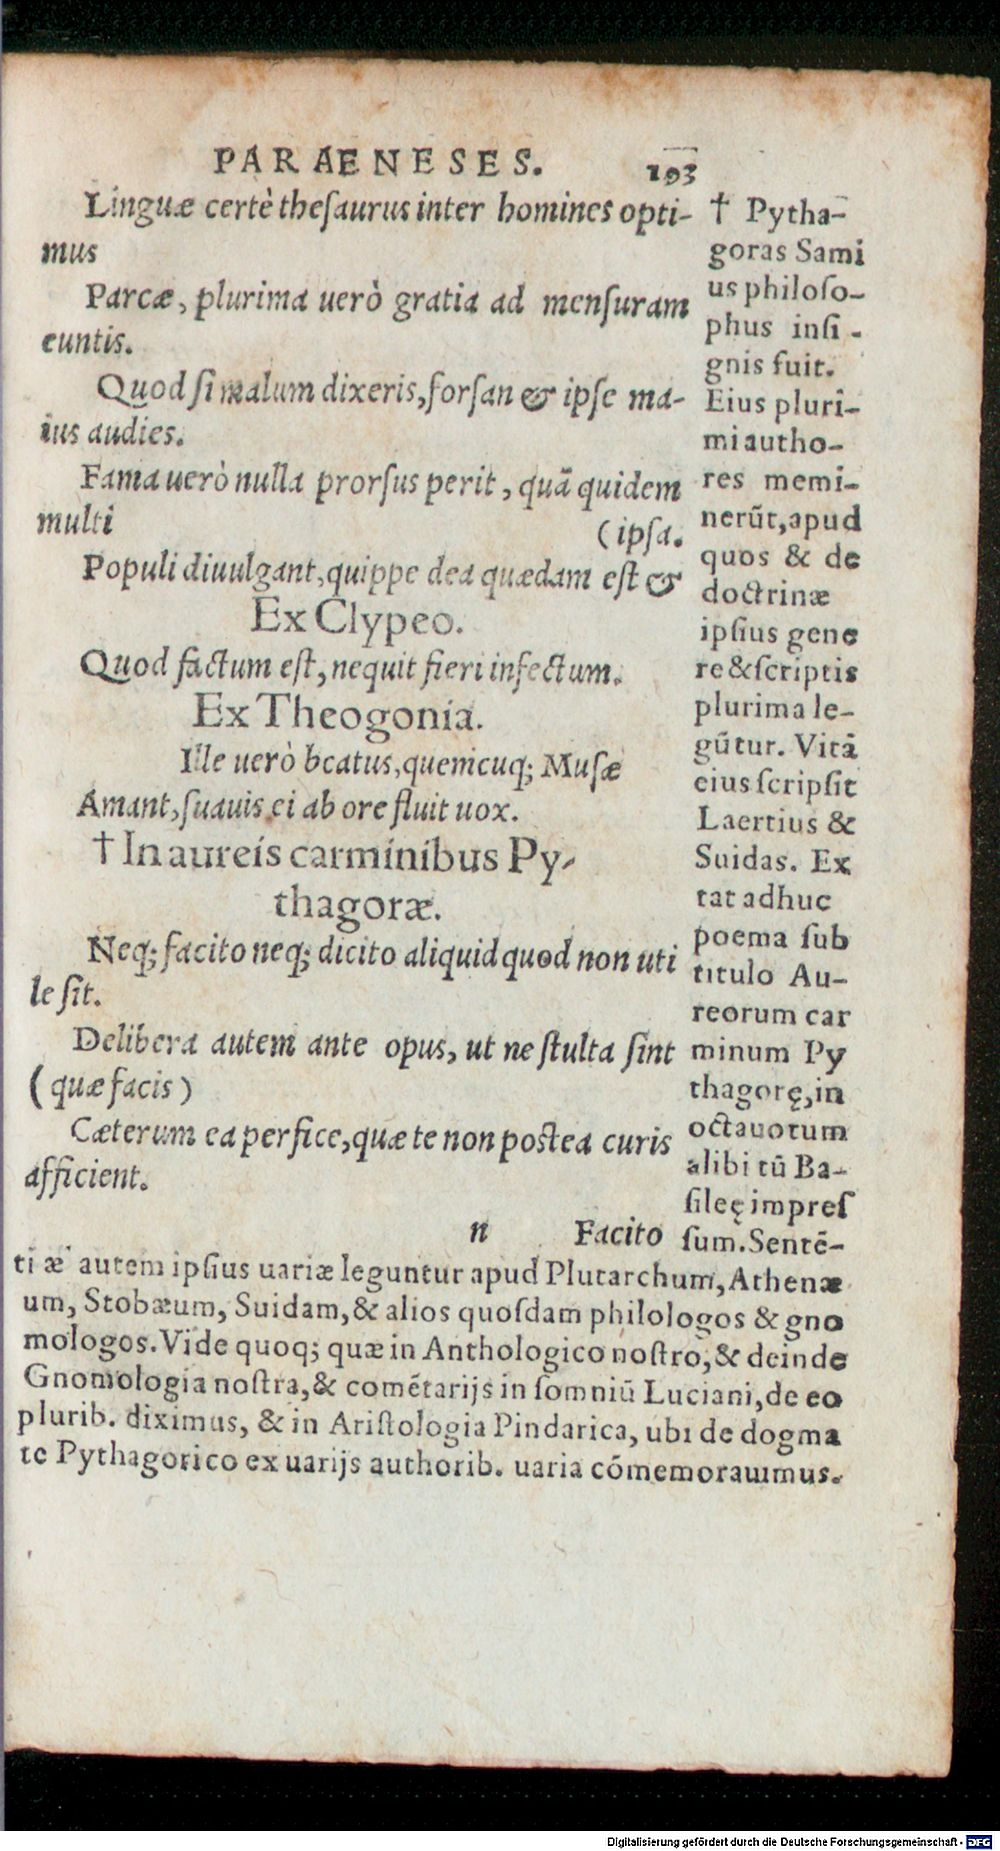 PARAENESES. 193
Linguæ certè theſaurus inter homines opti-
mus
Parcæ, plurima uerò gratia ad menſuram
euntis.
Quod ſi malum dixeris, forſan & ipſe ma-
ius audies.
Fama uerò nulla prorſus perit, quā quidem
multi (ipſa.
Populi diuulgant, quippe dea quædam eſt &
Ex Clypeo.
Quod factum eſt, nequit fieri infectum.
Ex Theogonia.
Ille uerò beatus, quemcuq; Muſæ
Amant, ſuauis ei ab ore fluit uox.
† In aureis carminibus Py-
thagoræ.
Neq; facito neq; dicito aliquid quod non uti
le ſit.
Delibera autem ante opus, ut ne ſtulta ſint
(quæ facis)
Cæterum ea perfice, quæ te non poſtea curis
afficient.
n Facito
† Pytha-
goras Sami
us philoſo-
phus inſi-
gnis fuit.
Eius pluri-
mi autho-
res memi-
nerūt, apud
quos & de
doctrinæ
ipſius gene
re & ſcriptis
plurima le-
gūtur. Vitā
eius ſcripſit
Laertius &
Suidas. Ex
tat adhuc
poema ſub
titulo Au-
reorum car
minum Py
thagorę, in
octauorum
alibi tū Ba-
ſileę impreſ
ſum. Sentē-
ti æ autem ipſius uariæ leguntur apud Plutarchum, Athenæ
um, Stobæum, Suidam, & alios quoſdam philologos & gno
mologos. Vide quoq; quæ in Anthologico noſtro, & deinde
Gnomologia noſtra, & comētarijs in ſomniū Luciani, de eo
plurib. diximus, & in Ariſtologia Pindarica, ubi de dogma
te Pythagorico ex uarijs authorib. uaria cōmemorauimus.
Digitalisierung gefördert durch die Deutsche Forschungsgemeinschaft - DFG